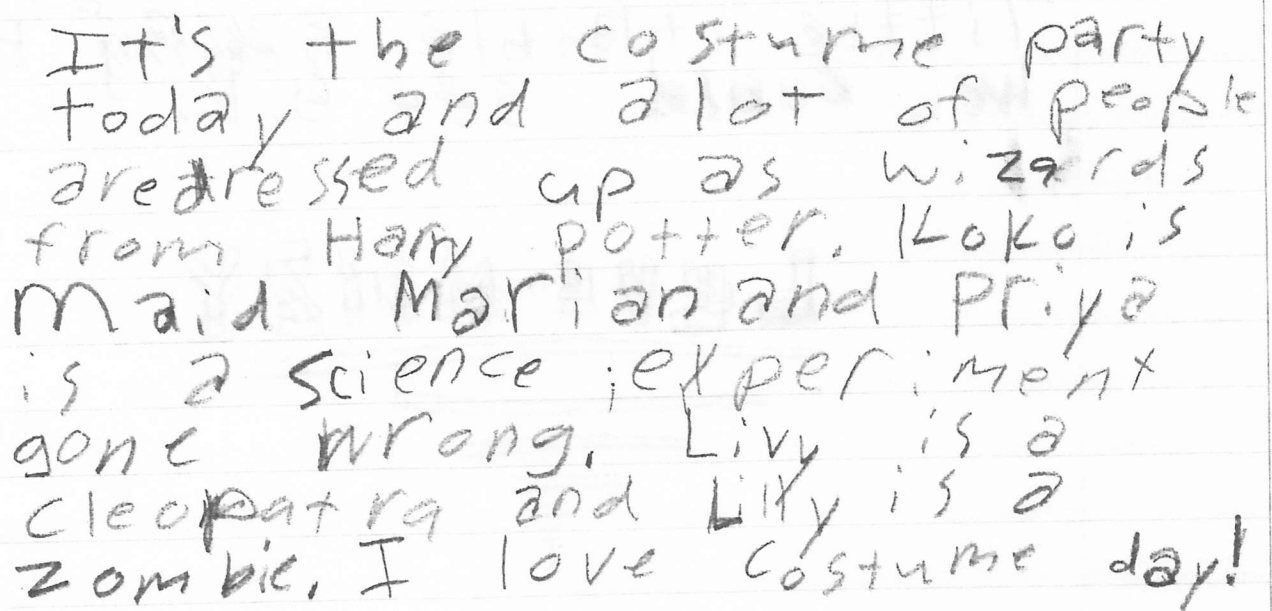 It's the costume party
today and alot of people
aredressed up as wizards
from Harry potter. Koko is
Maid Marian and Priya
is a science experiment
gone wrong. Livy is a
cleopatra and Lilly is a
zombie. I love costume day!